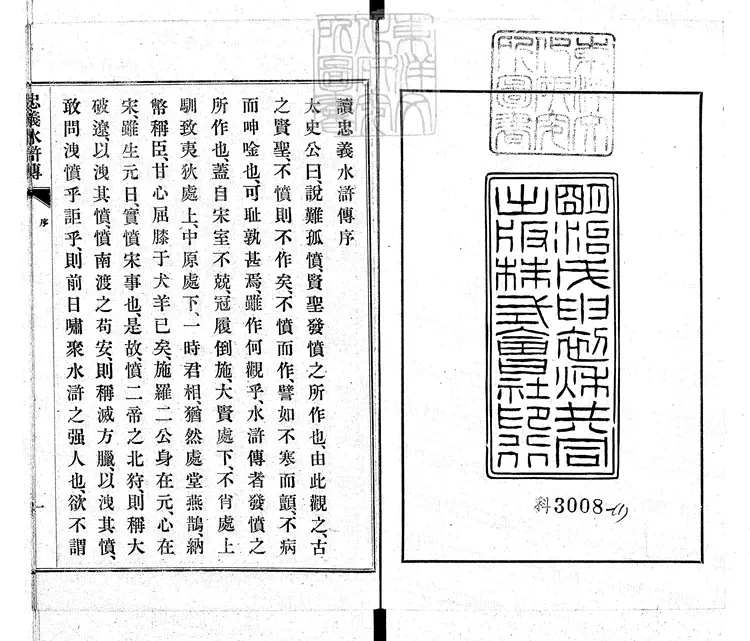 東洋文
化研究
所圖書
明治戊申初秌共同
出版株式會社印行
科3008-(1)
東洋文
化研究
所圖書
讀忠義水滸傳序
太史公曰、說難孤憤、賢聖發憤之所作也、由此觀之、古
之賢聖、不憤則不作矣、不憤而作、譬如不寒而顫、不病
而呻唫也、可耻孰甚焉、雖作何觀乎、水滸傳者發憤之
所作也、蓋自宋室不兢、冠履倒施、大賢處下、不肖處上
馴致夷狄處上、中原處下、一時君相、猶然處堂燕鵲、納
幣稱臣、甘心屈膝于犬羊已矣、施羅二公身在元、心在
宋、雖生元日、實憤宋事也、是故、憤二帝之北狩、則稱大
破遼、以洩其憤、憤南渡之苟安、則稱滅方臘、以洩其憤、
敢問洩憤乎詎乎、則前日嘯聚水滸之强人也、欲不謂
忠義水滸傳
序
一